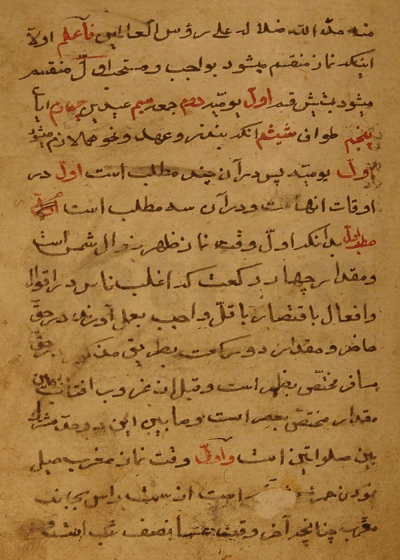 منه مدّ الله ظلاله على رؤس العالمين فاعلم اولا
اینکه نماز منقسم میشود بواجب و مستحب اول منقسم
میشود بشش قسم اول یومیه دوم جمعه سیم عیدین چهارم ایات
پنجم طواف ششم انکه بنذر و عهد و نحو هما لازم میشود
اول یومیه پس در آن چند مطلب است اول در
اوقات انها است و در آن سه مطلب است
مطلب اول بدانکه اول وقت نماز ظهر زوال شمس است
و مقدار چهار رکعت که اغلب ناس در اقوال
و افعال باقتصار باقل واجب بعمل آورند در حق
حاضر و مقدار دو رکعت بطریق مذکور در حق
مسافر مختص بظهر است و قبل از غروب افتاب بهمین
مقدار مختص بعصر است و ما بین این دو وقت مشترك
بین صلواتین است و اول وقت نماز مغرب میل
نمودن حمرة است از سمت راس بجانب
مغرب چنانچه آخر وقت عشا نصف شب است